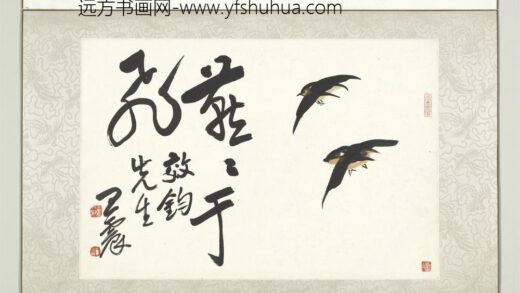 远方书画网-www.yfshuhua.com
燕燕于
飞
敬钧
先生
王震